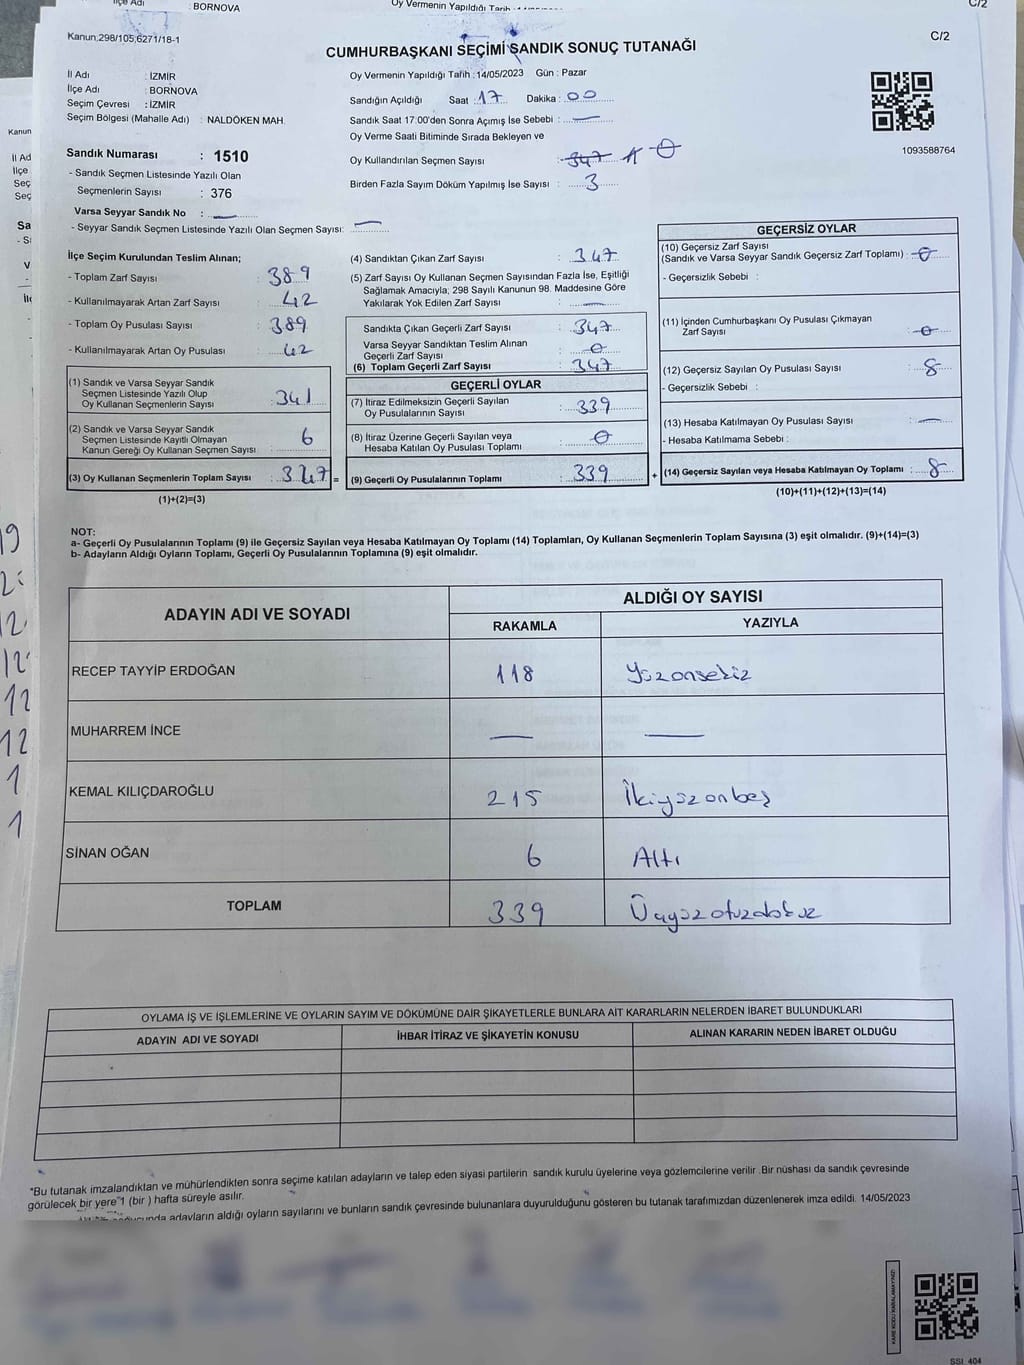 İlçe Adı : BORNOVA
Oy Vermenin Yapıldığı Tarih
C/2
Kanun;298/105,6271/18-1
CUMHURBAŞKANI SEÇİMİ SANDIK SONUÇ TUTANAĞI
C/2
İl Adı : İZMİR
İlçe Adı : BORNOVA
Seçim Çevresi : İZMİR
Seçim Bölgesi (Mahalle Adı) : NALDÖKEN MAH.
Oy Vermenin Yapıldığı Tarih : 14/05/2023 Gün : Pazar
Sandığın Açıldığı Saat : 17 Dakika : 00
Sandık Saat 17:00'den Sonra Açımış İse Sebebi : —
Oy Verme Saati Bitiminde Sırada Bekleyen ve
Oy Kullandırılan Seçmen Sayısı : 347 0
Birden Fazla Sayım Döküm Yapılmış İse Sayısı : 3
1093588764
Sandık Numarası : 1510
- Sandık Seçmen Listesinde Yazılı Olan
Seçmenlerin Sayısı : 376
Varsa Seyyar Sandık No : —
- Seyyar Sandık Seçmen Listesinde Yazılı Olan Seçmen Sayısı: —
İlçe Seçim Kurulundan Teslim Alınan;
- Toplam Zarf Sayısı : 389
- Kullanılmayarak Artan Zarf Sayısı : 42
- Toplam Oy Pusulası Sayısı : 389
- Kullanılmayarak Artan Oy Pusulası : 42
(1) Sandık ve Varsa Seyyar Sandık
Seçmen Listesinde Yazılı Olup
Oy Kullanan Seçmenlerin Sayısı : 341
(2) Sandık ve Varsa Seyyar Sandık
Seçmen Listesinde Kayıtlı Olmayan
Kanun Gereği Oy Kullanan Seçmen Sayısı : 6
(3) Oy Kullanan Seçmenlerin Toplam Sayısı : 347 =
(1)+(2)=(3)
(4) Sandıktan Çıkan Zarf Sayısı : 347
(5) Zarf Sayısı Oy Kullanan Seçmen Sayısından Fazla İse, Eşitliği
Sağlamak Amacıyla; 298 Sayılı Kanunun 98. Maddesine Göre
Yakılarak Yok Edilen Zarf Sayısı : —
Sandıkta Çıkan Geçerli Zarf Sayısı : 347
Varsa Seyyar Sandıktan Teslim Alınan
Geçerli Zarf Sayısı : 0
(6) Toplam Geçerli Zarf Sayısı : 347
GEÇERLİ OYLAR
(7) İtiraz Edilmeksizin Geçerli Sayılan
Oy Pusulalarının Sayısı : 339
(8) İtiraz Üzerine Geçerli Sayılan veya
Hesaba Katılan Oy Pusulası Toplamı : 0
(9) Geçerli Oy Pusulalarının Toplamı : 339 +
GEÇERSİZ OYLAR
(10) Geçersiz Zarf Sayısı
(Sandık ve Varsa Seyyar Sandık Geçersiz Zarf Toplamı) : 0
- Geçersizlik Sebebi :
(11) İçinden Cumhurbaşkanı Oy Pusulası Çıkmayan
Zarf Sayısı : 0
(12) Geçersiz Sayılan Oy Pusulası Sayısı : 8
- Geçersizlik Sebebi :
(13) Hesaba Katılmayan Oy Pusulası Sayısı : —
- Hesaba Katılmama Sebebi :
(14) Geçersiz Sayılan veya Hesaba Katılmayan Oy Toplamı : 8
(10)+(11)+(12)+(13)=(14)
NOT:
a- Geçerli Oy Pusulalarının Toplamı (9) ile Geçersiz Sayılan veya Hesaba Katılmayan Oy Toplamı (14) Toplamları, Oy Kullanan Seçmenlerin Toplam Sayısına (3) eşit olmalıdır. (9)+(14)=(3)
b- Adayların Aldığı Oyların Toplamı, Geçerli Oy Pusulalarının Toplamına (9) eşit olmalıdır.
ADAYIN ADI VE SOYADI
ALDIĞI OY SAYISI
RAKAMLA YAZIYLA
RECEP TAYYİP ERDOĞAN 118 Yüzonsekiz
MUHARREM İNCE — —
KEMAL KILIÇDAROĞLU 215 İkiyüzonbeş
SİNAN OĞAN 6 Altı
TOPLAM 339 Üçyüzotuzdokuz
OYLAMA İŞ VE İŞLEMLERİNE VE OYLARIN SAYIM VE DÖKÜMÜNE DAİR ŞİKAYETLERLE BUNLARA AİT KARARLARIN NELERDEN İBARET BULUNDUKLARI
ADAYIN ADI VE SOYADI İHBAR İTİRAZ VE ŞİKAYETİN KONUSU ALINAN KARARIN NEDEN İBARET OLDUĞU
*Bu tutanak imzalandıktan ve mühürlendikten sonra seçime katılan adayların ve talep eden siyasi partilerin sandık kurulu üyelerine veya gözlemcilerine verilir .Bir nüshası da sandık çevresinde
görülecek bir yere 1 (bir ) hafta süreyle asılır.
adayların aldığı oyların sayılarını ve bunların sandık çevresinde bulunanlara duyurulduğunu gösteren bu tutanak tarafımızdan düzenlenerek imza edildi. 14/05/2023
KARE KODU KARALAMAYINIZ!
SSI_404